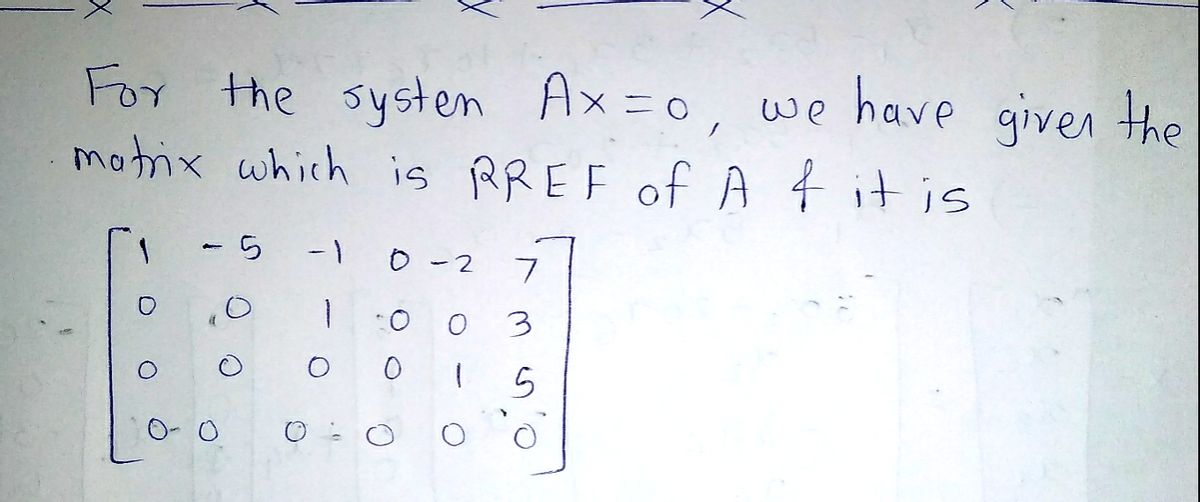 For the systen Ax=0, we have given the
matrix which is RREF of A & it is
1 -5 -1 0 -2 7
0 0 1 0 0 3
0 0 0 0 1 5
0 0 0 0 0 0